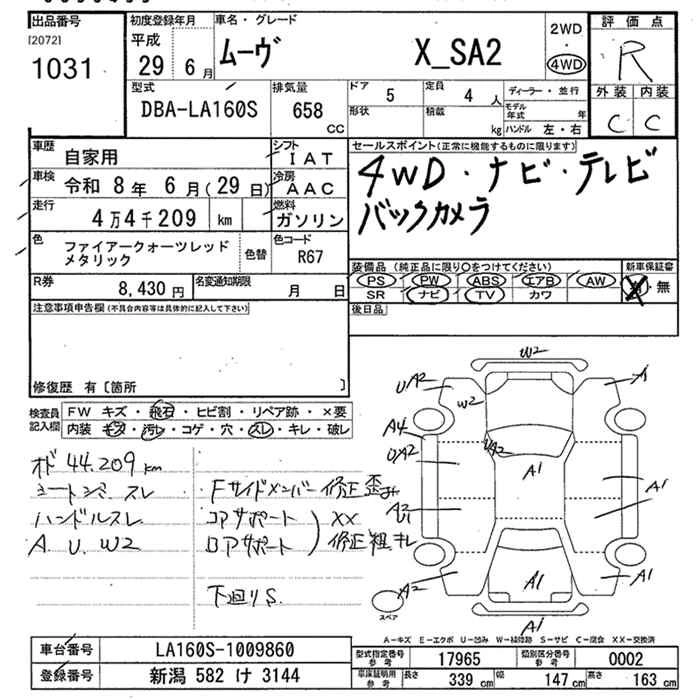 出品番号
[2072]
1031
初度登録年月
平成
29 6月
車名・グレード
ムーヴ X_SA2
2WD
・
4WD
評価点
R
外装 内装
C C
型式
DBA-LA160S
排気量
658 CC
ドア 5
定員 4 人
形状
積載 kg
ディーラー・並行
モデル年式 年
ハンドル 左・右
車歴 自家用
シフト IAT
車検 令和 8年 6月(29日)
冷房 AAC
走行 4万4千209 km
燃料 ガソリン
色 ファイアークォーツレッド
メタリック
色替
色コード R67
R券 8,430円
名変通知期限 月 日
セールスポイント(正常に機能するものに限ります)
4WD・ナビ・テレビ
バックカメラ
装備品(純正品に限り○をつけてください)
PS PW ABS エアB AW
SR ナビ TV カワ
新車保証書
有・無
後日品
注意事項申告欄(不具合内容等は具体的に記入して下さい)
修復歴 有〔箇所 〕
検査員記入欄
FW キズ・飛石・ヒビ割・リペア跡・×要
内装 キズ・汚レ・コゲ・穴・スレ・キレ・破レ
オド 44.209 km
シートシミ スレ
ハンドルスレ
A. U. W2
Fサイドメンバー修正歪み
コアサポート XX
ロアサポート 修正粗キレ
下回りS.
W2
UA2
W2
A
A4
UA2
UA2
A1
A2
U1
A1
A2
A1
A1
A1
スペア
A−キズ E−エクボ U−凹み W−補修跡 S−サビ C−腐食 XX−交換済
車台番号 LA160S-1009860
登録番号 新潟 582 け 3144
型式指定番号 参考 17965
類別区分番号 参考 0002
車床証明用 参考 長さ 339 cm 幅 147 cm 高さ 163 cm